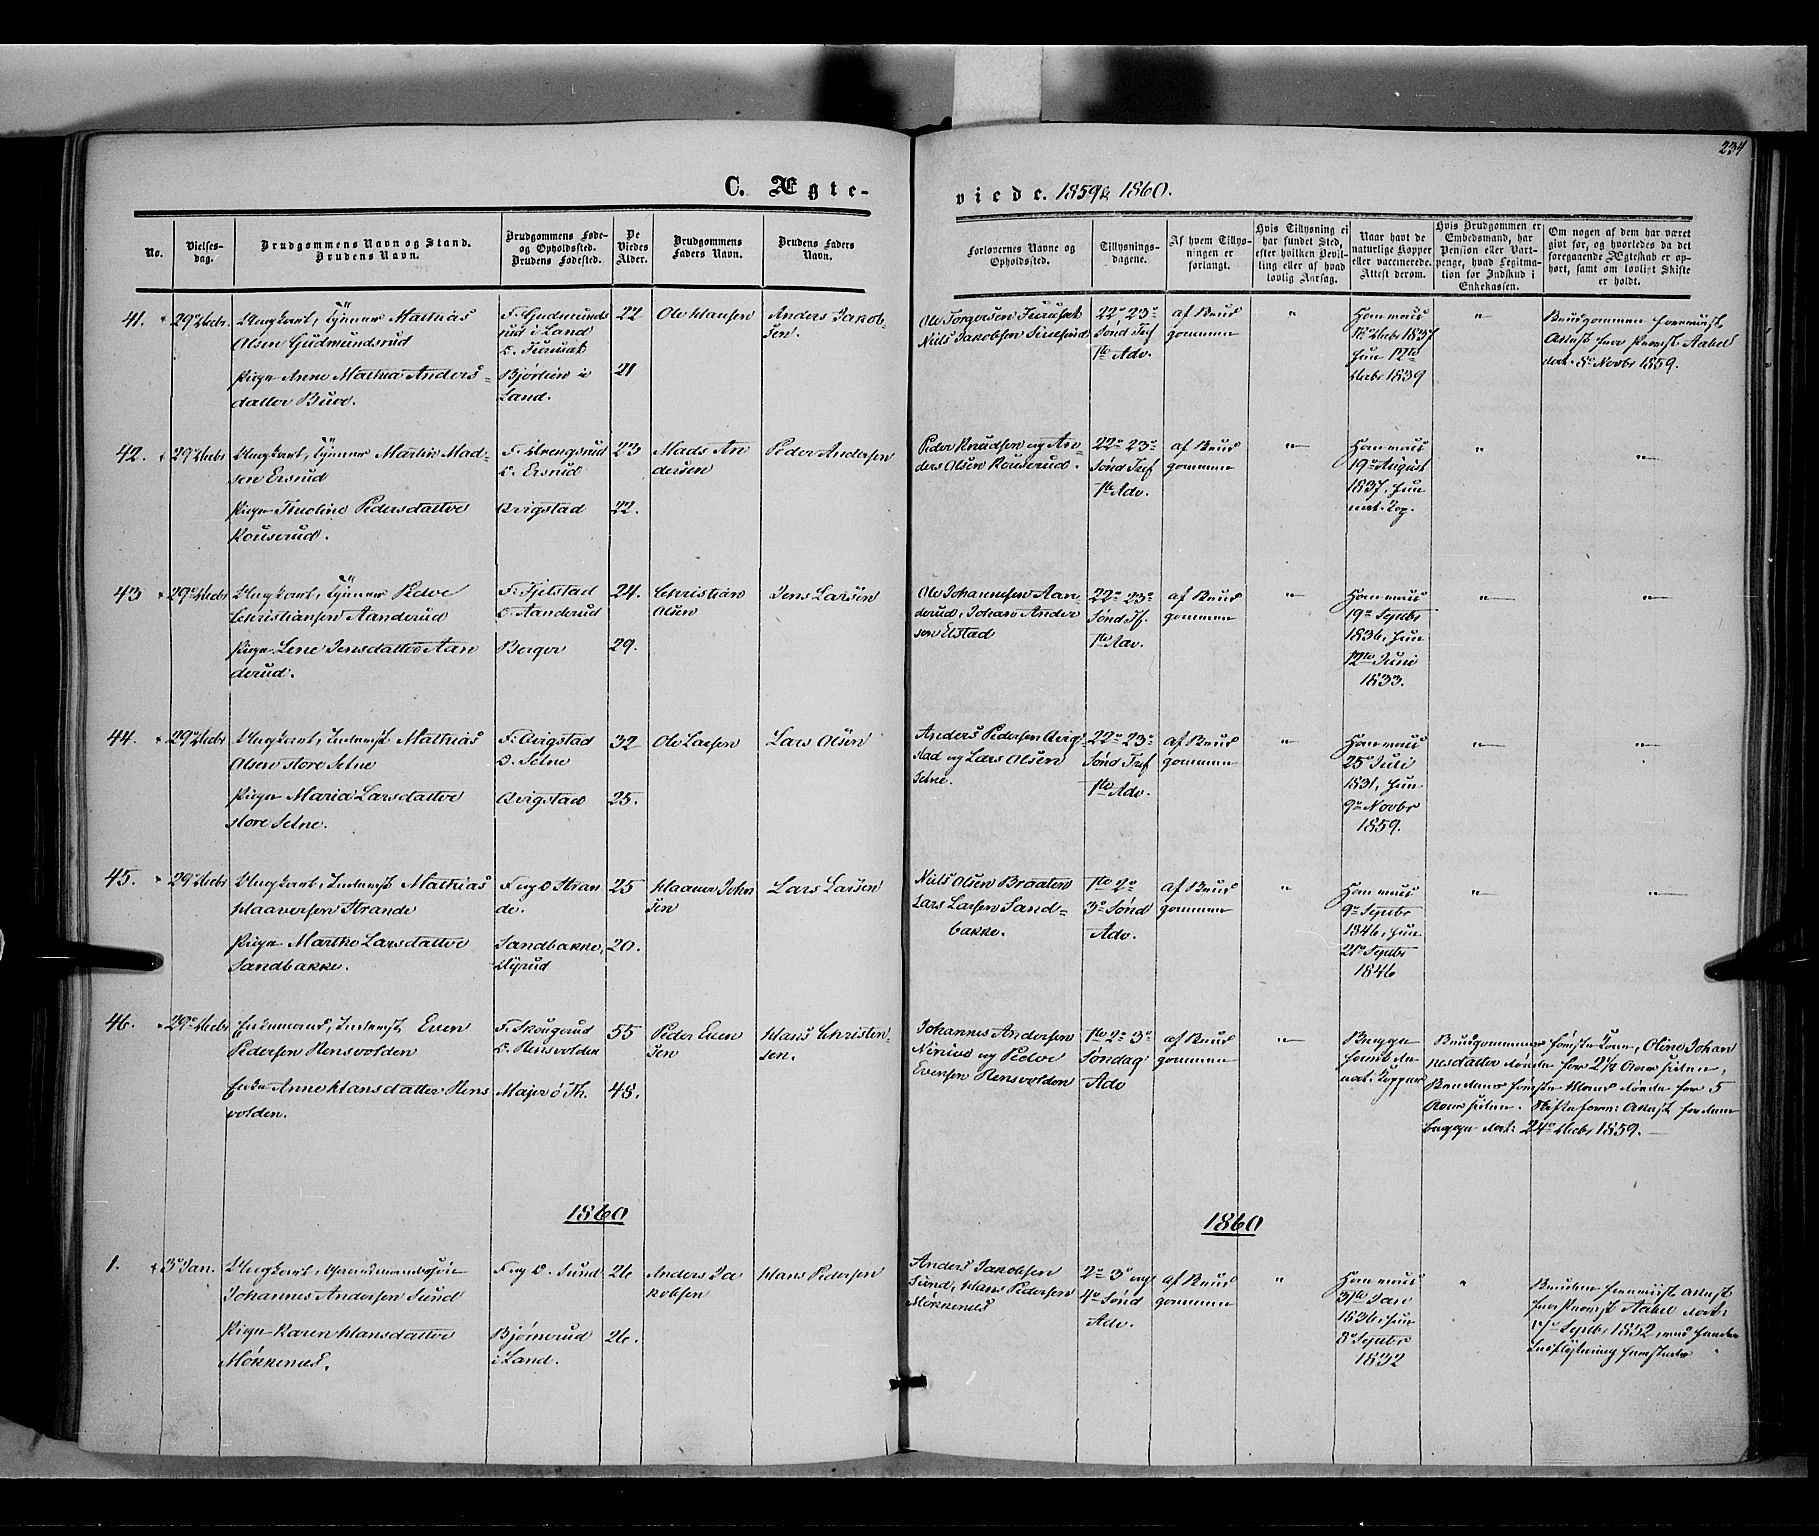 234
C. Ægte-
viede. 1859 & 1860.
No.
Vielses-
dag.
Brudgommens Navn og Stand.
Brudens Navn.
Brudgommens Føde-
og Opholdssted.
Brudens Fødested.
De
Viedes
Alder.
Brudgommens
Faders Navn.
Brudens Faders
Navn.
Forlovernes Navne og
Opholdssted.
Tillysnings-
dagene.
Af hvem Tillys-
ningen er
forlangt.
Hvis Tillysning ei
har fundet Sted,
efter hvilken Bevil-
ling eller af hvad
lovlig Aarsag.
Naar havt de
naturlige Kopper
eller vaccinerede.
Attest derom.
Hvis Brudgommen er
Embedsmand, har
Pension eller Vart-
penge, hvad Legitima-
tion for Indskud i
Enkekassen.
Om nogen af dem har været
givt før, og hvorledes da det
foregaaende Ægteskab er op-
hørt, samt om lovligt Skifte
er holdt.
41.
29 Decbr.
Ungkarl, Tjener Mathias
Olsen Gudmundsrud
Pige Anne Mathia Anders-
datter Buve.
F. Gudmunds
rud i Land
O. Furusæt
Bjørlien i
Land.
22
21
Ole Hansen
Anders Jakob-
sen.
Ole Torgersen Furusæt
Niels Jakobsen
22 23
Sønd Tref
1te Adv.
af Brud
gommen
"
Han vacc
Decbr 1837
hun 17de
Decbr 1839
"
Brudgommen fremviist
Attest fra Provst Aabel
dat. 8 Novbr 1859.
42.
29 Decbr
Ungkarl, Tjener Martin Mad-
sen Ersrud
Pige Pedersdatter
Kouserud.
O. Ersrud
Avigstad
23
22.
Mads An
dersen
Peder Andersen
Peder Knudsen og An
ders Olsen Kouserud.
22 23
Sønd Tref
1te Adv.
af Brud
gommen
"
Han vacc
19 August
1837, hun
nat. Kop.
"
"
43
29 Decbr
Ungkarl, Tjener Peder
Christiansen Aanderud
Pige Lene Jensdatter Aan
derud.
F. Fjelstad
O. Aanderud
Berger
24.
29.
Christian
Olsen
Jens Larsen
Ole Johannesen Aan
derud, Johan Ander
sen Elstad
22 23
Sønd Tf.
1te Adv.
af Brud
gommen
"
Han vacc
19 Septbr
1836, hun
12te Juni
1833.
"
"
44.
29 Decbr
Ungkarl, Inderst Mathias
Olsen store Setne
Pige Maria Larsdatter
store Setne.
F. Avigstad
O. Setne
Avigstad
32
25.
Ole Larsen
Lars Olsen
Anders Pedersen Avig-
stad og Lars Olsen
Setne.
22 23
Sønd Tref
1te Adv.
af Brud
gommen
"
Han vacc
25 Juli
1831, hun
9 Novbr
1859.
"
"
45.
29 Decbr
Ungkarl, Inderst Mathias
Haaversen Strande
Pige Marthe Larsdatter
Sandbakke.
F. og O Stran
de.
Sandbakke,
25
20.
Haaver John
sen
Lars Larsen
Niels Olsen Braaten
Lars Larsen Sand-
bakke.
1te 2
3 Sønd
Adv.
af Brud
gommen
"
Han vacc
9 Septbr
1846, hun
21 Septbr
1846
"
"
46.
29 Decbr
Enkemand, Inderst Even
Pedersen Rensvolden
Enke Anne Hansdatter Rens
volden.
F. Skougerud
O. Rensvolden
Majer ø Th.
55
48.
Peder Even
sen
Hans Christen-
sen.
Johannes Andersen
Ninive og Peder
Evensen Rensvolden
1te 2 3
Søndag
Adv
af Brud
gommen
"
Begge
nat. Kopper
Brudgommens første Kone, Oline Johan
nesdatter døde for 2½ Aar siden,
Brudens første Mand døde for 5
Aar siden. Skifteforv: Attest for dem
begge dat: 24 Decbr 1859.
1860
1860
1.
3 Jan.
Ungkarl, Gaardmandssøn
Johannes Andersen Sund
Pige Karen Hansdatter
Mökkenes.
F. og O. Sund
Bjørnerud
i Land.
26
26.
Anders Ja
kobsen
Hans Pedersen
Anders Jakobsen
Sund, Hans Pedersen
Mökkenes
2 3 og
4 Sønd
Adv.
af Brud
gommen
"
Han vacc
31te Jan
1836, hun
8 Septbr
1832
"
Bruden fremviist Attest
fra Provst Aabel dat:
Septbr 1852, med